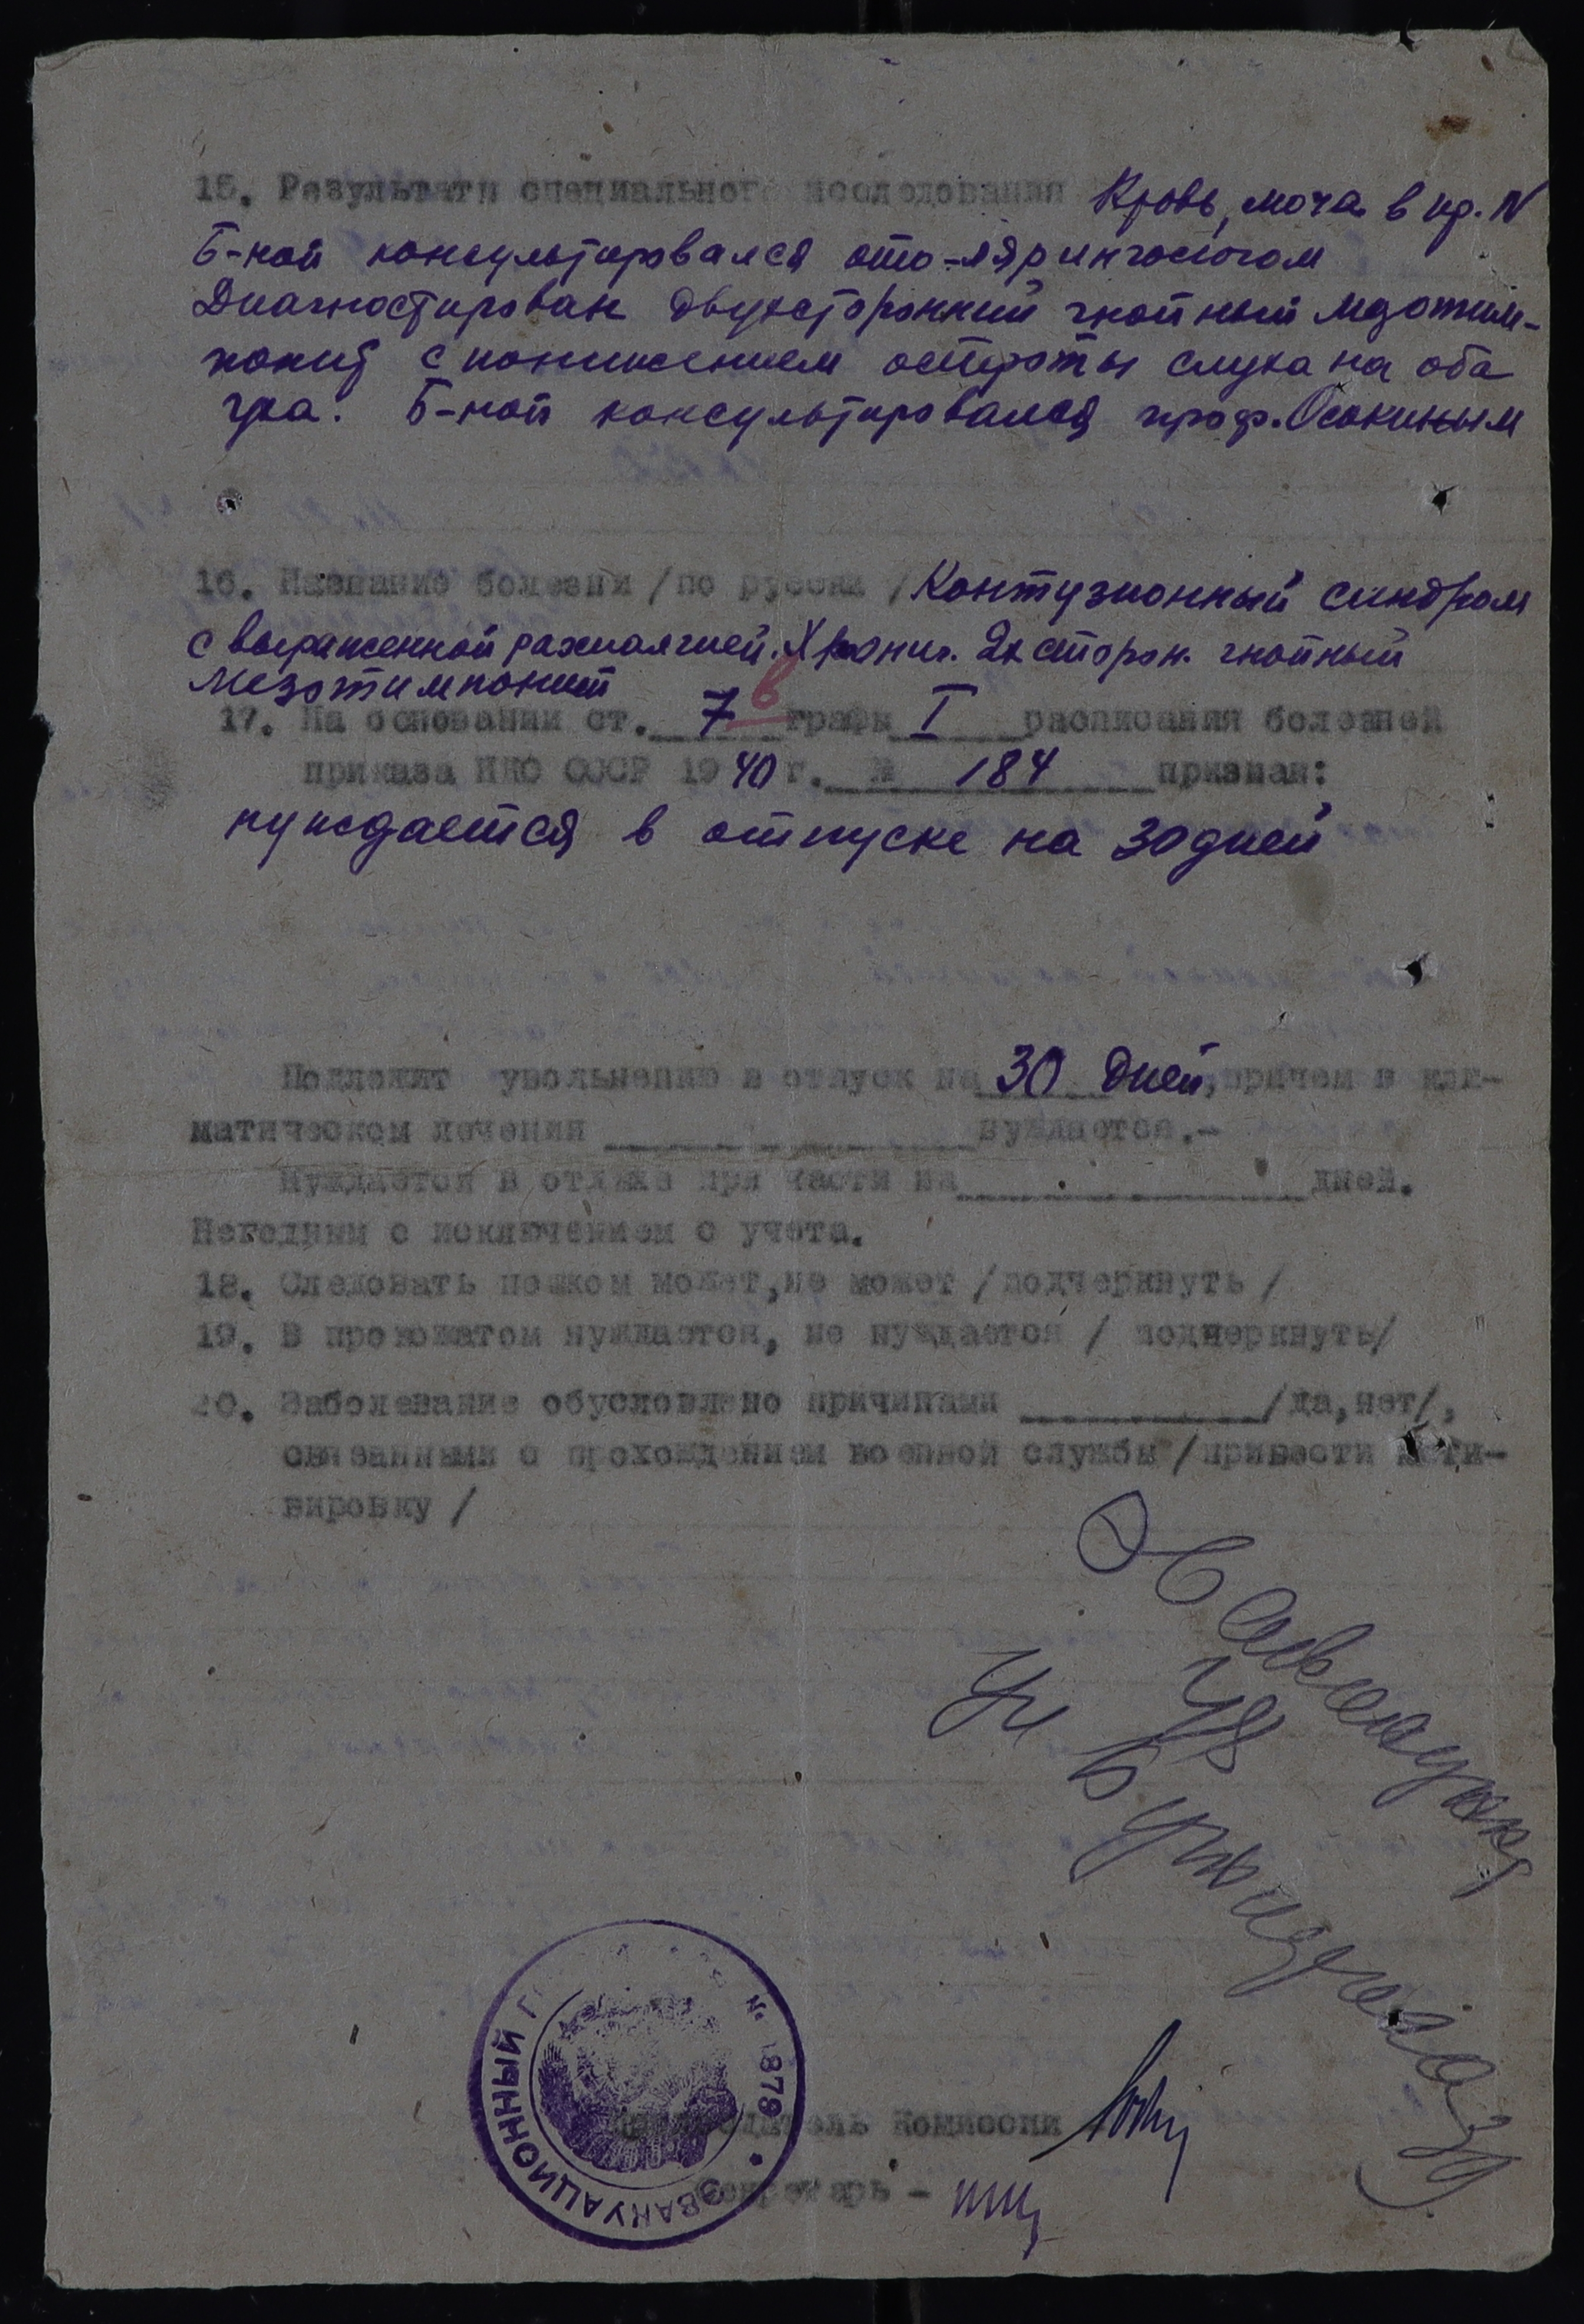 15. Результаты специального исследования Кровь, моча в пр. N
Б-ной консультировался ото-лярингологом
Диагностирован двухсторонний гнойный мезотим-
понит с понижением остроты слуха на оба
уха. Б-ной консультировался проф. Осокиным
16. Название болезни /по русски/ Контузионный синдром
с выраженной рахиалгией. Хронич. 2х сторон. гнойный
мезотимпонит
17. На основании ст. 7 в графы I расписания болезней
приказа НКО СССР 1940 г. № 184 признан:
нуждается в отпуске на 30 дней
Подлежит увольнению в отпуск на 30 дней, причем в кли-
матическом лечении нуждается.-
Нуждается в отдыхе при части на дней.
Негодным с исключением с учета.
18. Следовать пешком может, не может /подчеркнуть/
19. В провожатом нуждается, не нуждается / подчеркнуть/
20. Заболевание обусловлено причинами /да, нет/,
связанными с прохождением военной службы /привести моти-
вировку /
Ул 48
ЭВАКУАЦИОННЫЙ № 1879
Председатель Комиссии
Секретарь -